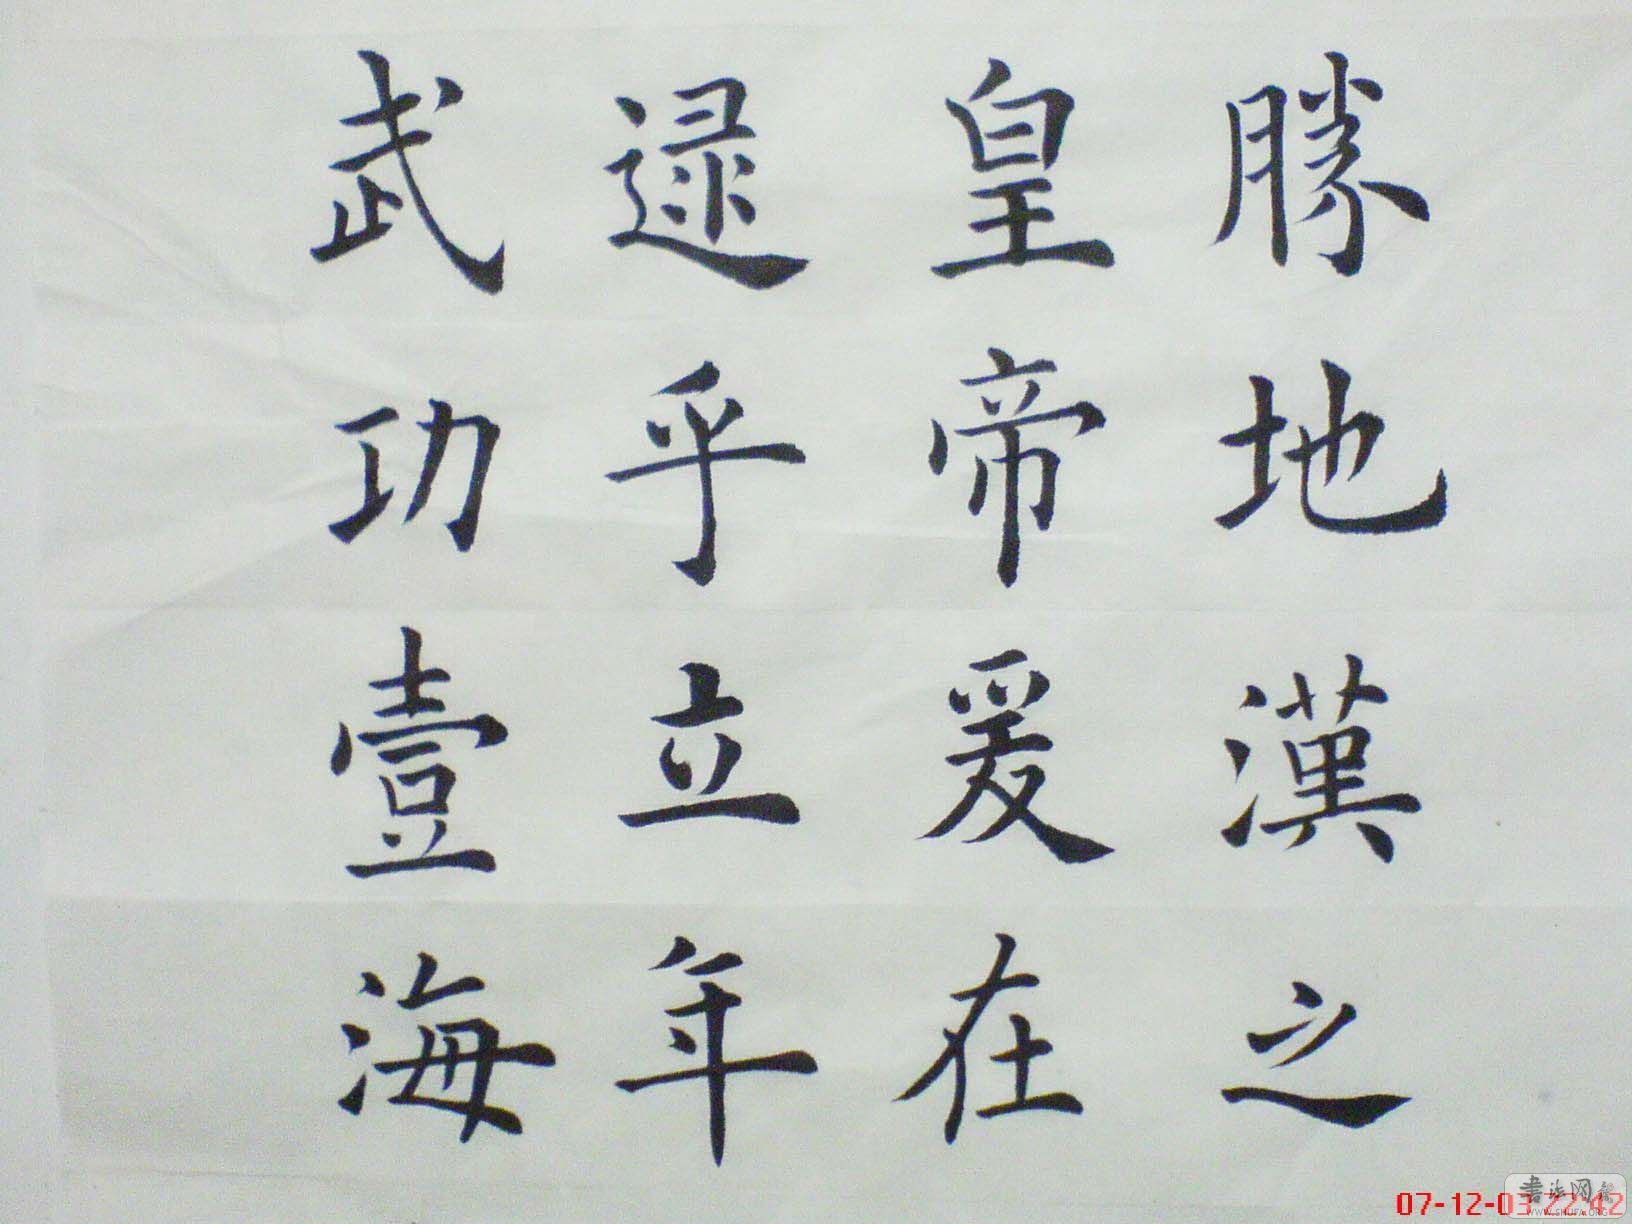 勝地漢之
皇帝爰在
逯乎立年
武功壹海
07-12-03 22:42
書法网
WWW.SHUFA.ORG